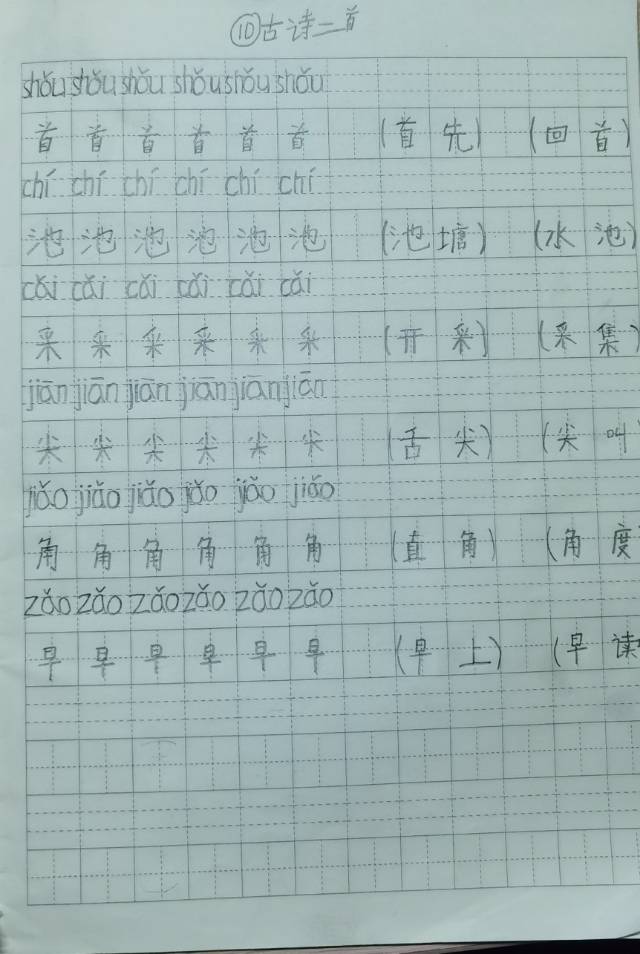 ⑩古诗二首
shǒu shǒu shǒu shǒu shǒu shǒu
首 首 首 首 首 首 (首先) (回首)
chí chí chí chí chí chí
池 池 池 池 池 池 (池塘) (水池)
cǎi cǎi cǎi cǎi cǎi cǎi
采 采 采 采 采 采 (开采) (采集)
jiān jiān jiān jiān jiān jiān
尖 尖 尖 尖 尖 尖 (舌尖) (尖叫
jiǎo jiǎo jiǎo jiǎo jiǎo jiǎo
角 角 角 角 角 角 (直角) (角度
zǎo zǎo zǎo zǎo zǎo zǎo
早 早 早 早 早 早 (早上) (早读